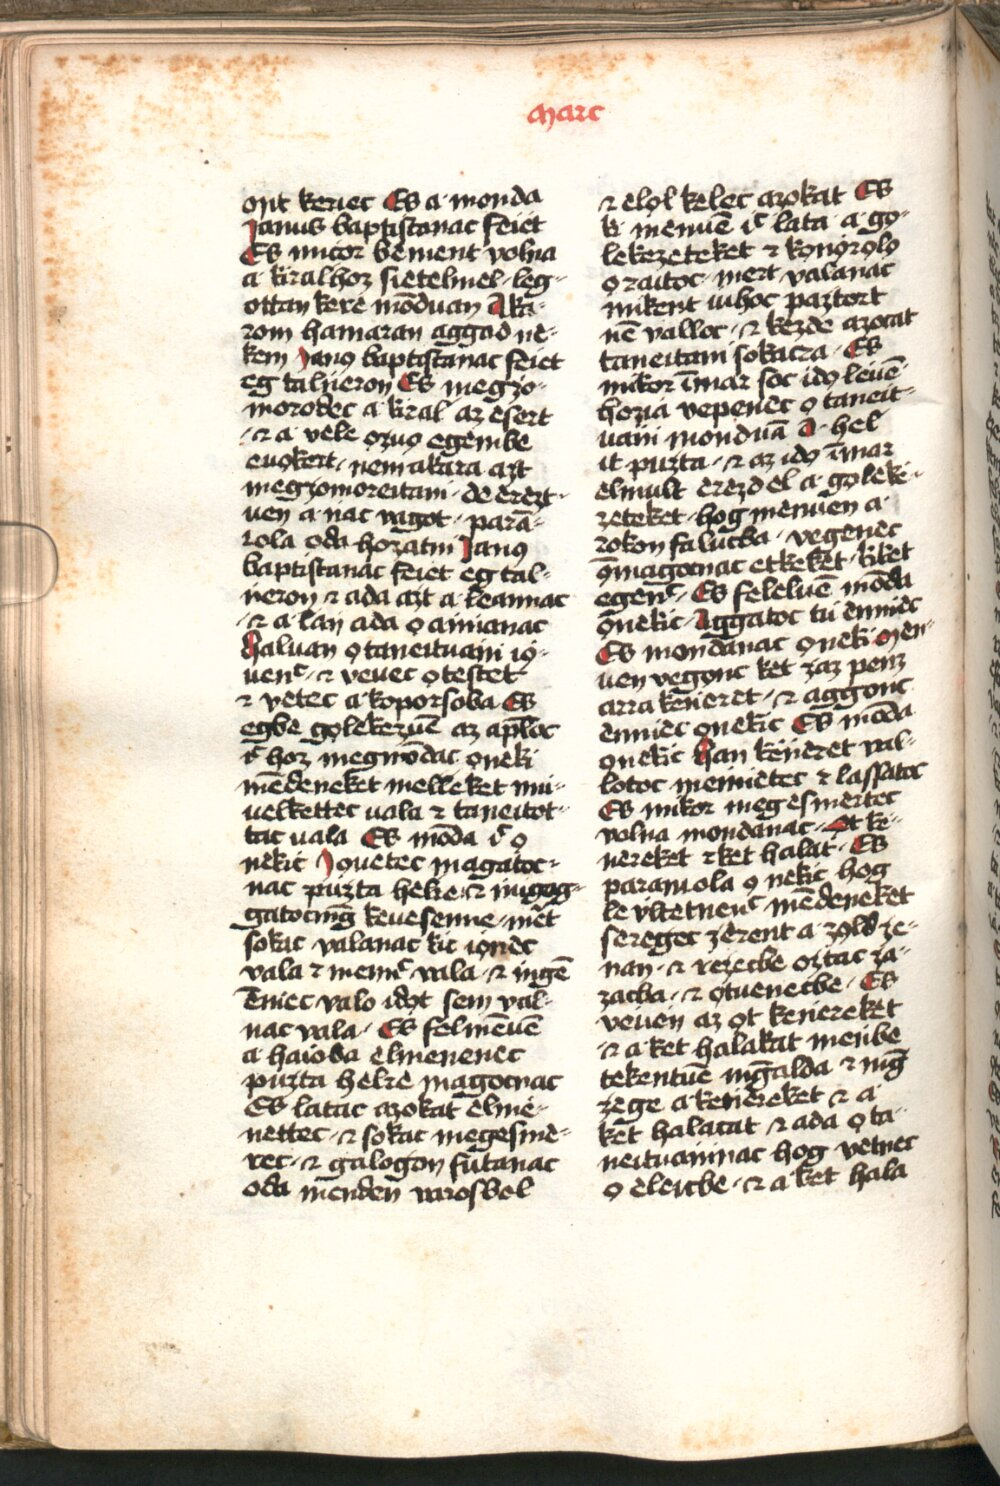 Marc
ont keriec Es a monda
Ianus baptistanac feiet
Es micor bement volna
a kiralhoz sietelmel · leg-
ottan kere mōduan Aka-
rom hamaran aggad ne-
kem Ianꝯ baptistanac feiet
eg talneron Es megzo-
morodec a kiral az esert
⁊ a vele ozuo egembe
nem akara azt
megzomoreitani · de erezt-
uen a nac vagot · parā-
rola oda hozatni Ianꝯ
baptistanac feiet eg tal-
neron ⁊ ada azt a leannac
⁊ a lan ada o annanac
Haluan o taneituani io-
uenc · ⁊ veuec o testet
⁊ vetec a koporsoba Es
egbe golekezuē az apl̄oc
ic̄ hoz megmōdac oneki
mēdeneket melleket mi-
uelkettec uala ⁊ taneitot-
tac uala Es mōda ic̄ o
nekic Iouetec magatoc-
nac puzta helre ⁊ nugog-
gatocmḡ keuesenne · mēt
sokac valanac kic ionec
vala ⁊ menn̄c vala · ⁊ ingē
ēniec valo idot sem val-
nac vala · Es felmēuē
a haioba elmenenec
puzta helre magocnac
Es latac azokat elme-
nettec · ⁊ sokac megesme-
rec · ⁊ galogon futanac
oda menden varosbol
⁊ elol kelec azokat Es
ki menuē ic̄ lata a go-
lekezeteket ⁊ konorolo
o raitoc · mert valanac
mikent iuhoc paztort
nē valloc · ⁊ kezde azocat
taneitani sokacra · Es
mikor īmar soc ido leuē
hozia vepenec o taneit-
uani monduā A · hel
it puzta · ⁊ az ido īmar
elmult erezd el a goleke-
zeteket · hog menuen a
zokon falucba · vegenec
ōmagocnac etkeket · kiket
egenc̄ · Es feleluē mōda
ōnekic Aggatoc tu enniec
Es mondanac oneki Men-
uen vegonc ket zaz penz
arra keneret · ⁊ aggonc
enniec onekic Es mōda
onekic Han keneret val-
lotoc mennietec ⁊ lassatoc
Es mikor megesmertec
volna mondanac · Ot ke-
nereket ⁊ ket halat · Es
paranciola o nekic hog
le vltetnenc̄ mēdeneket
seregec zerent a zold ze-
nan · ⁊ rezecbe oztac za-
zacba · ⁊ otuenecbe · Es
veuen az ot kenereket
⁊ a ket halakat menbe
tekentuē mḡalda ⁊ mḡ
zege a kenereket ⁊ a
ket halacat ⁊ ada o ta-
neituaninac hog vetnec
o eleicbe · ⁊ a ket hala